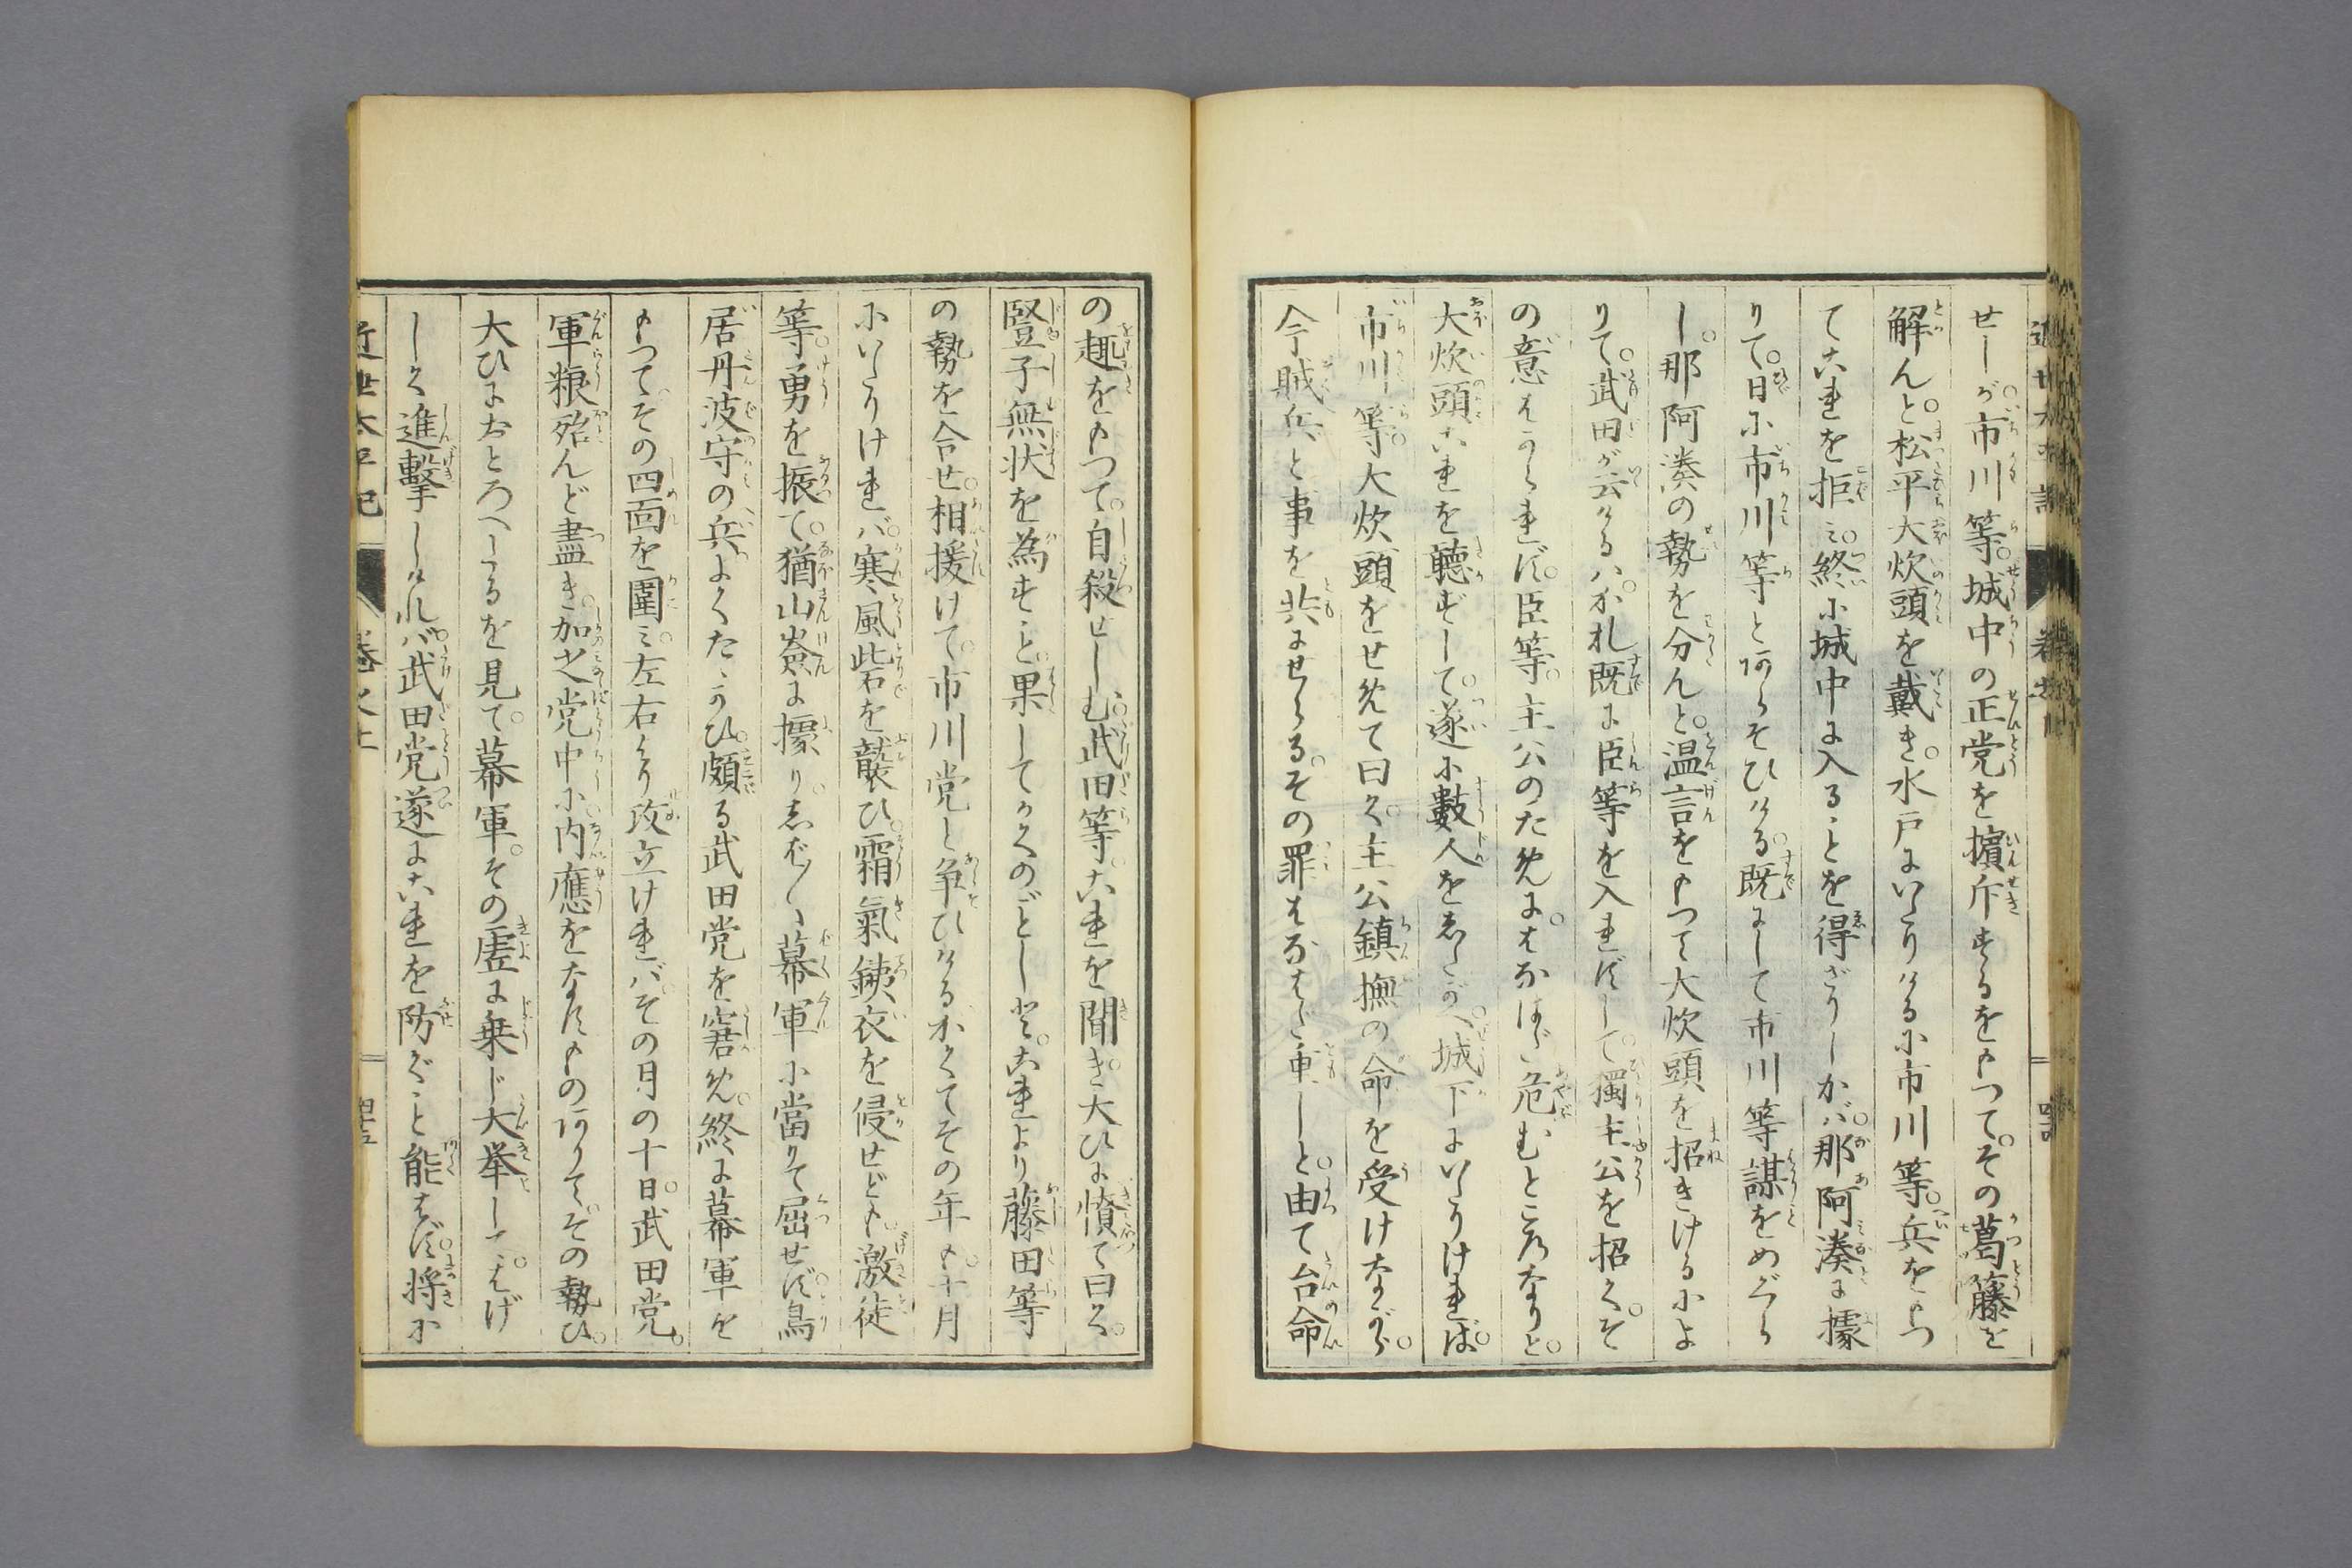 せしが。市川等。城中の正党を擯斥するをもつて。その葛籐を
解んと。松平大炊頭を戴き。水戸にいたりけるに市川等。兵をもつ
てこれを拒み。終に城中に入ることを得ざりしかバ。那阿湊に據
りて。日に市川等とあらそひける。既にして市川等謀をめぐら
し。那阿湊の勢を分んと。温言をもつて大炊頭を招きけるによ
りて。武田が云けるハ。かれ既に臣等を入れずして。獨主公を招く。そ
の意はかられず。臣等。主公のために。はなはだ危むところなりと。
大炊頭これを聴ずして。遂に數人をしたがへ。城下にいたりけれバ。
市川等。大炊頭をせめて曰く。主公鎮撫の命を受けながら。
今賊兵と事を共にせらる。その罪はなはだ重しと。由て台命
の趣をもつて。自殺せしむ。武田等。これを聞き。大ひに憤て曰く。
豎子無状を為すこと。果してかくのごとしと。これより藤田等
の勢を合せ。相援けて。市川党と争ひける。かくてその年も。十月
にいたりけれバ。寒風砦を襲ひ。霜氣鐵衣を侵せども。激徒
等。勇を振て。猶山嶮に據り。しば〳〵幕軍に當りて屈せず。鳥
居丹波守の兵よくたゝかひ。頗る武田党を窘め。終に幕軍を
もつて。その四面を圍み。左右より攻立けれバ。その月の十日。武田党。
軍粮殆んど盡き。加之党中に内應をなすもの有りて。その勢ひ。
大ひにおとろへたるを見て。幕軍。その虚に乗じ大挙して。はげ
しく進撃しけれバ。武田党遂にこれを防ぐこと能はず。将に
近世太平記　巻之上　四十五